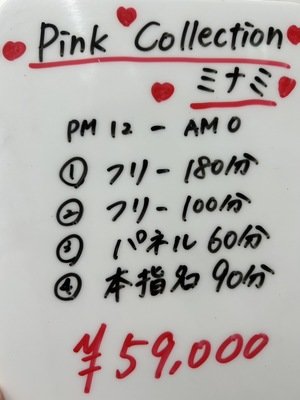 Pink Collection
ミナミ
PM 12 - AM 0
① フリー 180分
② フリー 100分
③ パネル 60分
④ 本指名 90分
¥59,000